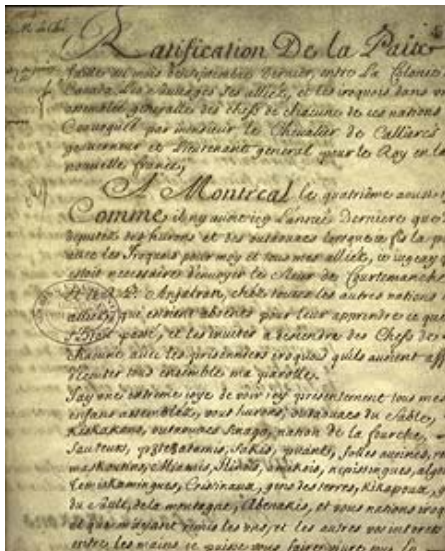 Ratification De la Paix
faite au mois de septembre dernier, entre La Colonie
Canada, Les Sauvages ses alliez, et les iroquois dans
assemblée generalle des chefs de chacune de ces nations
Convoquée par monsieur le Chevalier de Callieres
gouverneur et Lieutenant general pour le Roy en la
nouvelle france,
A Montreal le quatrième aoust
Comme il n'y avoit icy l'année derniere que
deputez des hurons et des outaouacs lorsque je fis la
avec les Iroquois pour moy et tous mes alliez, je jugeay
estoit necessaire d'envoyer le Sieur de Courtemanche
et le R. P. Anjalran, chez toutes les autres nations
alliez qui estoient absents pour leur apprendre ce
s'estoit passé, et les inviter a descendre des Chefs de
chacune avec les prisonniers iroquois qu'ils avoient
d'ecouter tous ensemble ma parolle.
J'ay une extreme joye de voir icy presentement tous mes
enfans assemblez, vous hurons, outaouacs du Sable,
Kiskakons, outaouacs Sinago, nation de la fourche,
Sauteurs, Sakis, puants, folles avoines,
maskoutins, Miamis, Ilinois, nepissingues,
Temiskamingues, Cristinaux, gens des terres, Kikapoux,
du Sault, de la montagne, Abenakis, et vous nations
et que m'ayant remis les uns, et les autres vos
entre les mains je puisse vous faire vivre tous